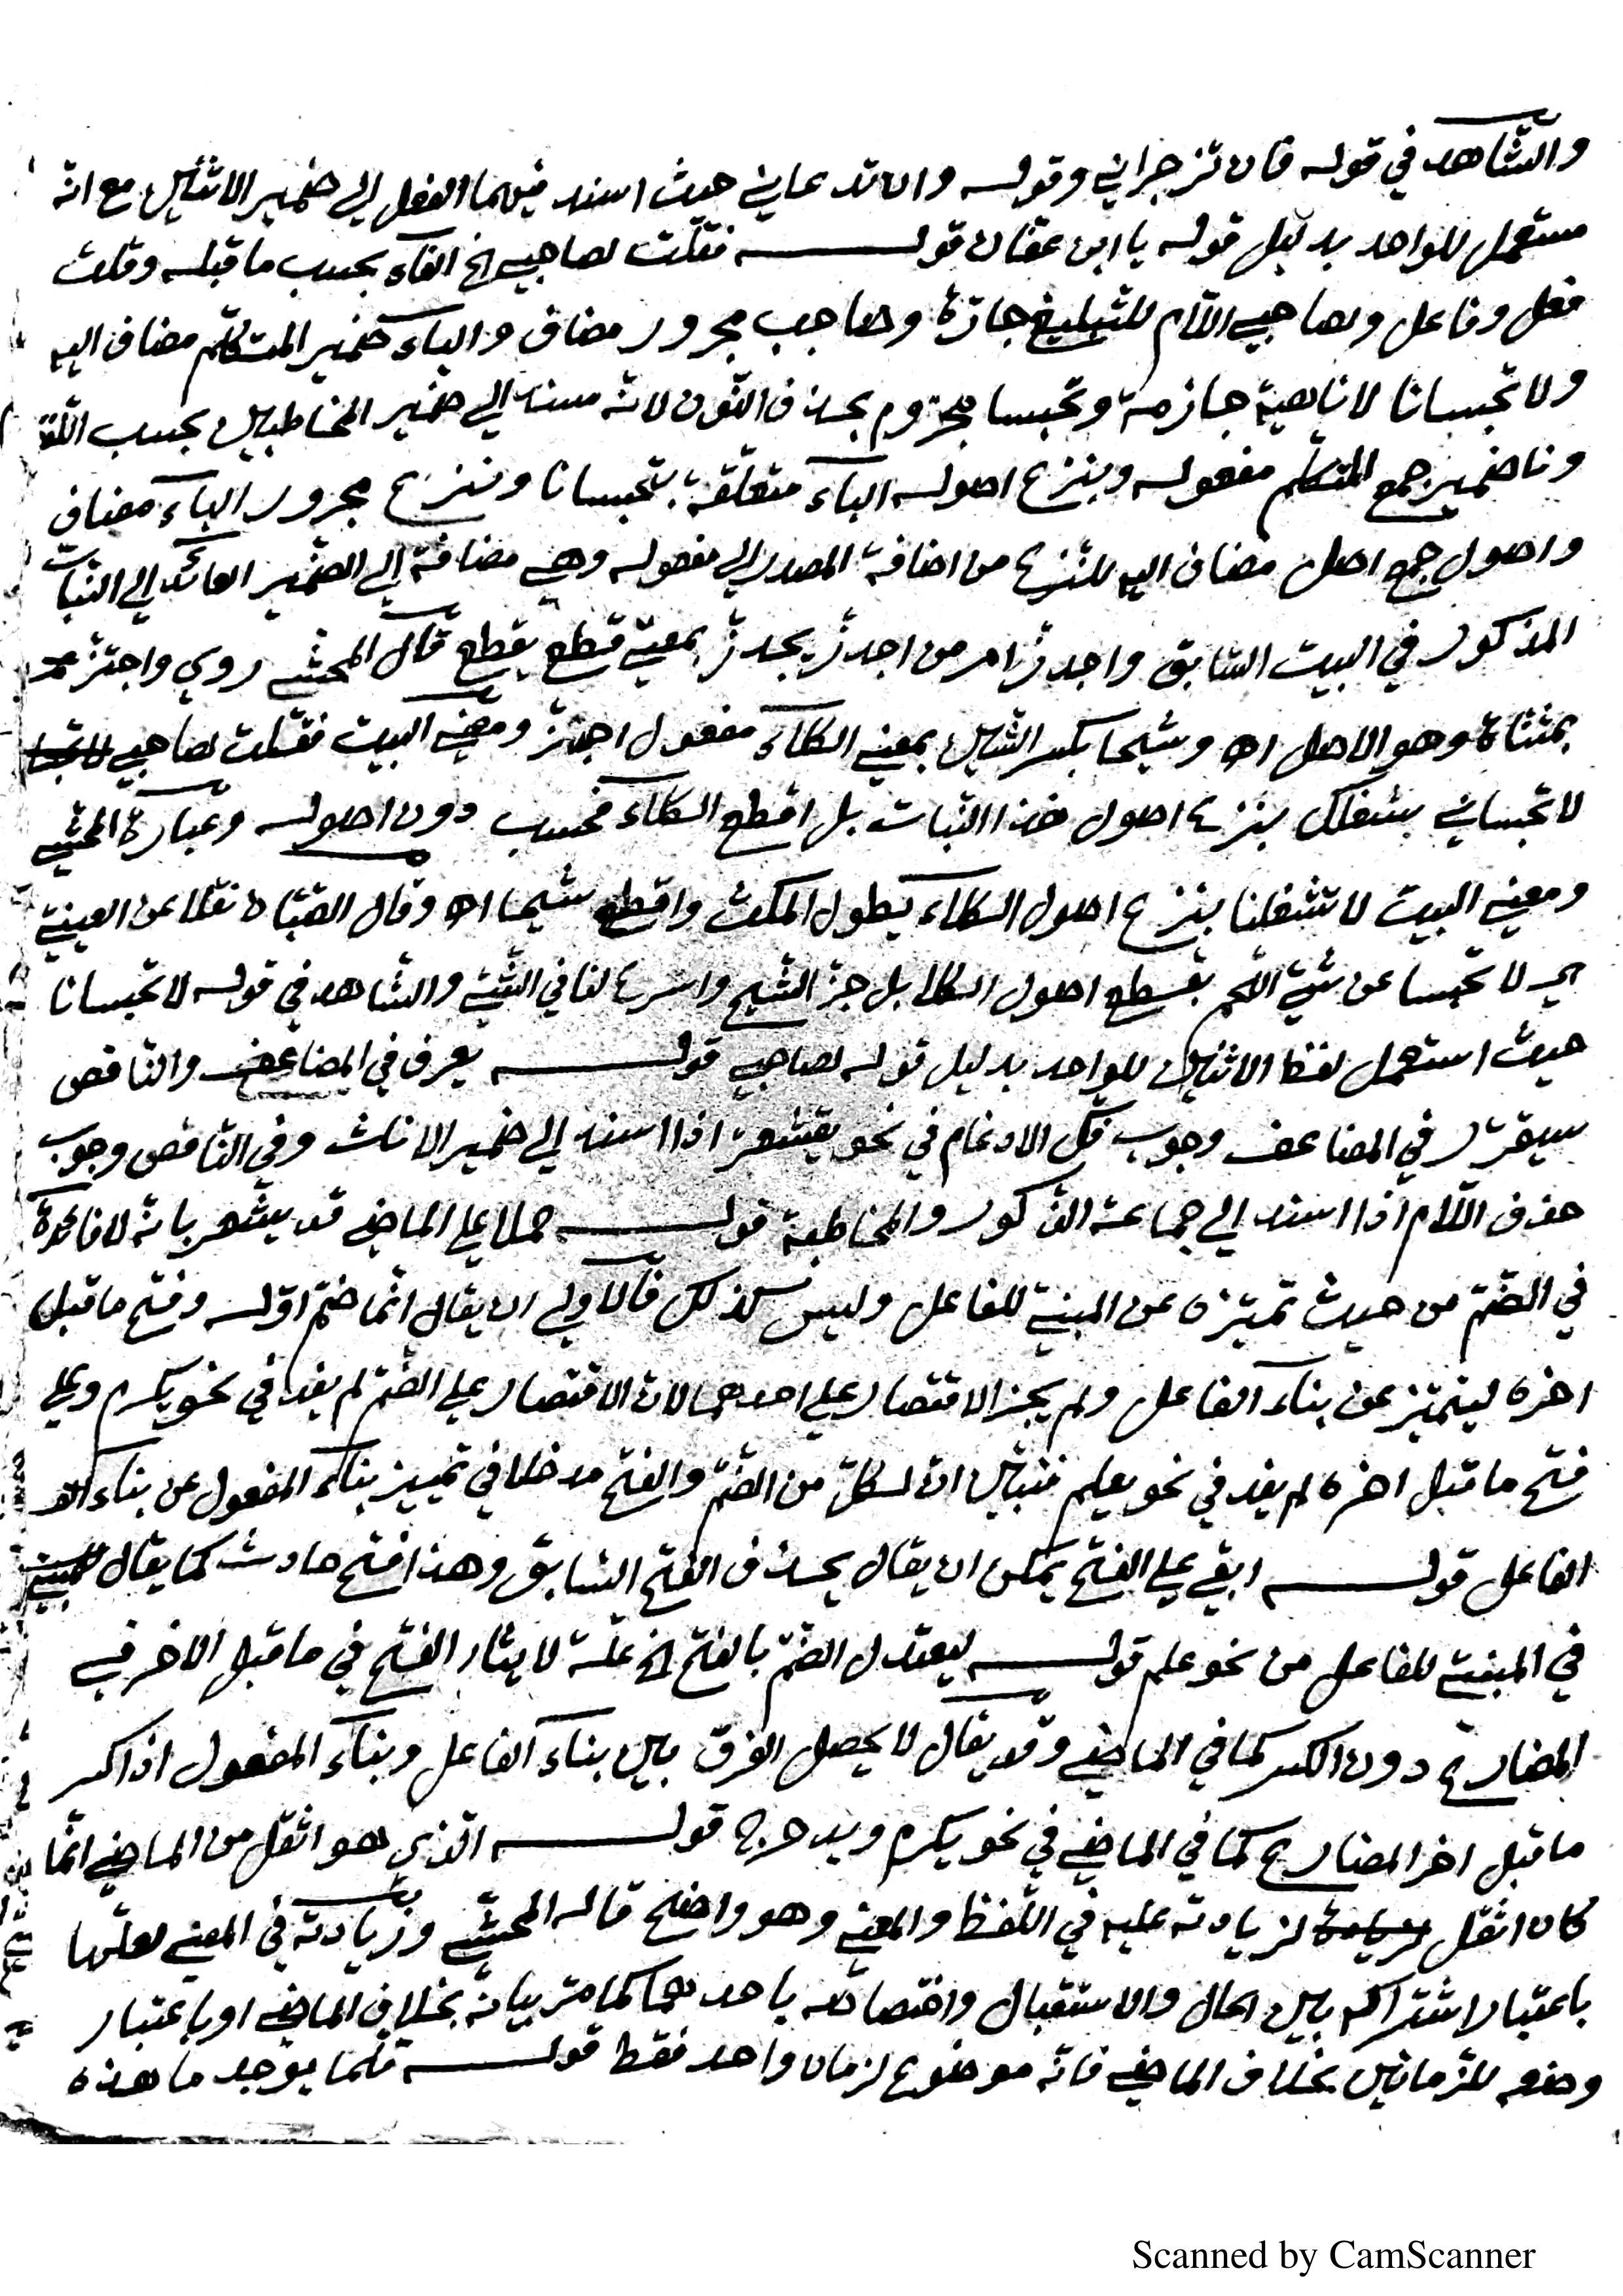 والشّاهد في قوله فان تزجراني وقوله وان تدعاني حيث اسند فيهما الفعل الى ضمير الاثنين مع انّه
مستعمل للواحد بدليل قوله يا ابن عفّان قوله فقلت لصاحبي الخ الفآء بحسب ما قبله وقلت
فعل وفاعل ولصاحبي اللّام للتّبليغ جارّة وصاحب مجرور مضاف والياء ضمير المتكلّم مضاف اليه
ولا تحبسانا لا ناهية جازمة وتحبسا مجزوم بحذف النّون لانّه مسند الى ضمير المخاطبين بحسب اللّفظ
ونا ضمير جمع المتكلّم مفعوله وبنزع اصوله الباء متعلّقة بتحبسانا ونزع مجرور الباء مضاف
واصول جمع اصل مضاف اليه للنّزع من اضافة المصدر الى مفعوله وهي مضافة الى الضّمير العائد الى النّبات
المذكور في البيت السّابق واجدزّ امر من اجدزّ يجدزّ بمعنى قطع يقطع قال المحشّي روي واجتزّ
بمثنّاة وهو الاصل اه وشيحا بكسر الشّين بمعنى الكلاء مفعول اجتزّ ومعنى البيت فقلت لصاحبي
لا تحبساني بشغلك بنزع اصول هذا النّبات بل اقطع الكلاء فحسب دون اصوله وعبارة المحشّي
ومعنى البيت لا تشغلنا بنزع اصول الكلاء يطول المكث واقطع شيحا اه وقال الصّبّان نقلا عن العيني
اي لا تحبسا عن شيّ اللّحم بقطع اصول الكلا بل جزّ الشّيح واسرع لنا في الشّيّ والشّاهد في قوله لا تحبسانا
حيث استعمل لفظ الاثنين للواحد بدليل قوله لصاحبي قوله يعرف في المضاعف والنّاقص
سيقرّر في المضاعف وجوب فكّ الادغام في نحو يقشعرّ اذا اسند الى ضمير الاناث وفي النّاقص وجوب
حذف اللّام اذا اسند الى جماعة الذّكور والمخاطبة قوله حملا على الماضي قد يشعر بانّه لا فائدة
في الضّمّ من حيث تميّزه عن المبنيّ للفاعل وليس كذلك فالاولى ان يقال انّما ضمّ اوّله وفتح ما قبل
اخره ليتميّز عن بناء الفاعل ولم يجز الاقتصار على احدهما لانّ الاقتصار على الضّمّ لم يفد في نحو يكرم وعلى
فتح ما قبل اخره لم يفد في نحو يعلم فتبيّن انّ لكلّ من الضّمّ والفتح مدخلا في تمييز بناء المفعول عن بناء
الفاعل قوله ابقي على الفتح يمكن ان يقال يحذف الفتح السّابق وهذا فتح حادث كما يقال
في المبنيّ للفاعل من نحو علم قوله ليعتدل الضّمّ بالفتح الخ علّة لايثار الفتح في ما قبل الاخر في
المضارع دون الكسر كما في الماضي وقد يقال لا يحصل الفرق بين بناء الفاعل وبناء المفعول اذا كسر
ما قبل اخر المضارع كما في الماضي في نحو يكرم ويدحرج قوله الّذي هو اثقل من الماضي انّما
كان اثقل لزيادته عليه في اللّفظ والمعنى وهو واضح قاله المحشّي وزيادته في المعنى لعلّها
باعتبار اشتراكه بين الحال والاستقبال واختصاصه باحدهما كما مرّ بيانه بخلاف الماضي او باعتبار
وضعه للزّمانين بخلاف الماضي فانّه موضوع لزمان واحد فقط قوله قلّما يوجد ما هذه
Scanned by CamScanner